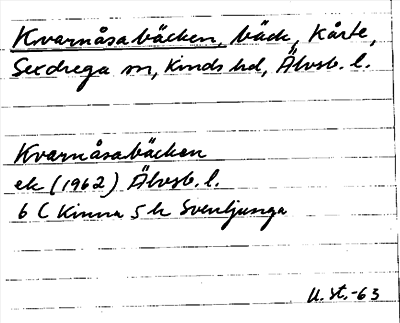 Kvarnåsabäcken, bäck, Kårte,
Sexdrega sn, Kinds hd, Älvsb. l.
Kvarnåsabäcken
ek (1962) Älvsb. l.
6 C Kinna 5 h Svenljunga
U. St. -63